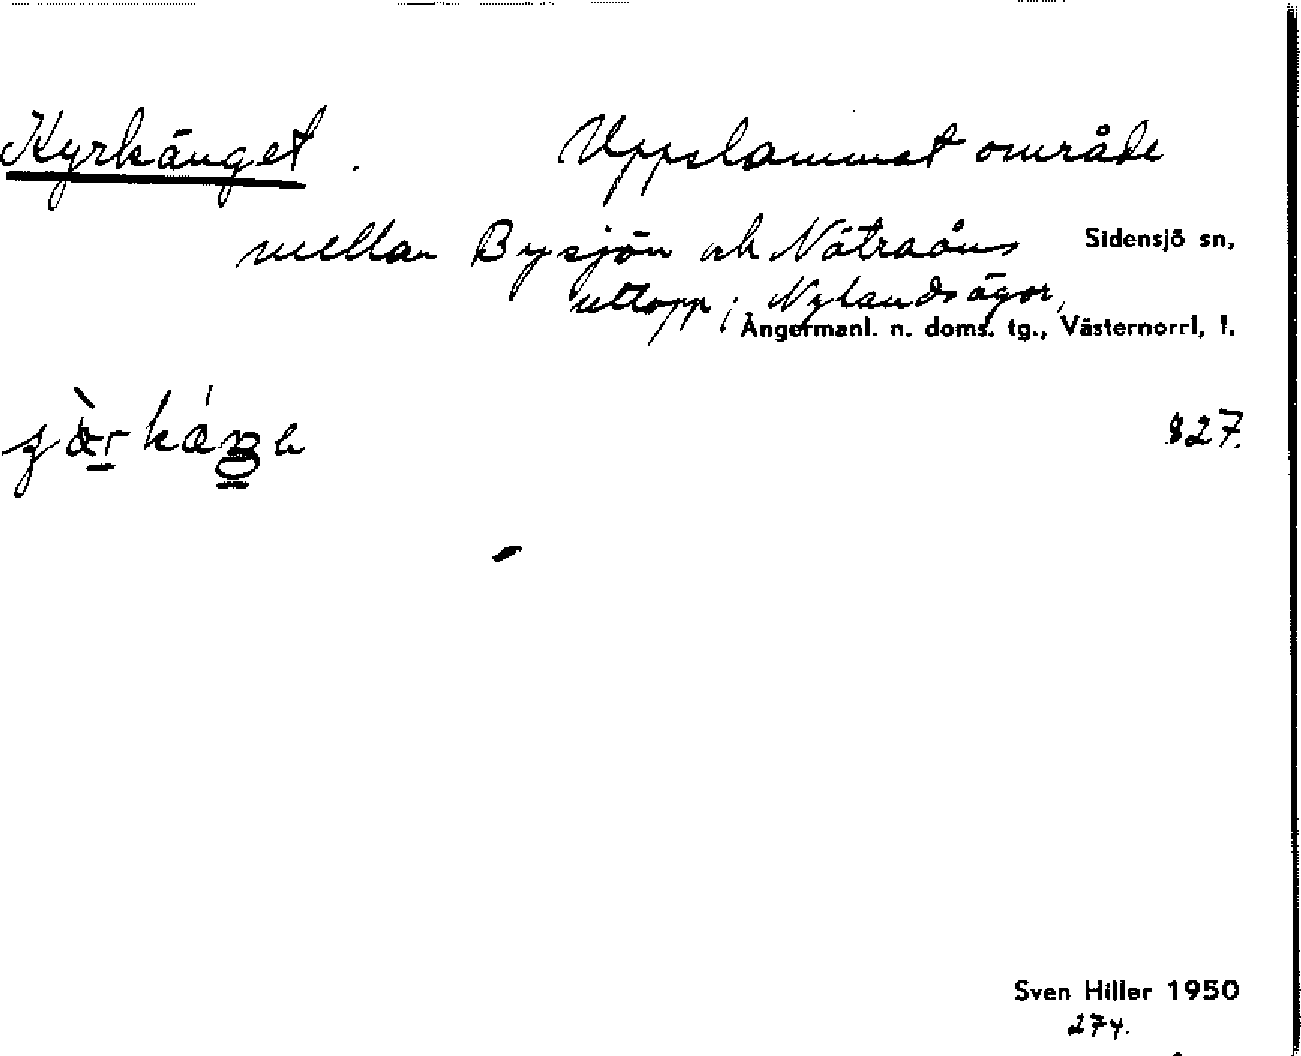 Kyrkänget. Uppslammat område
mellan Bysjön och Nätraåns Sidensjö sn,
utlopp; Nylands ägor,
Ångermanl. n. doms. tg., Västernorrl. l.
827.
Sven Hiller 1950
274.